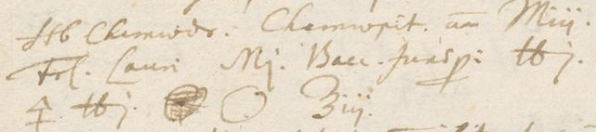 Hb Chamaedr. Chamaepit. an Miij.
Fol. Lauri Mj. Bacc. Junip: ℔j.
℔j. ʒiij.